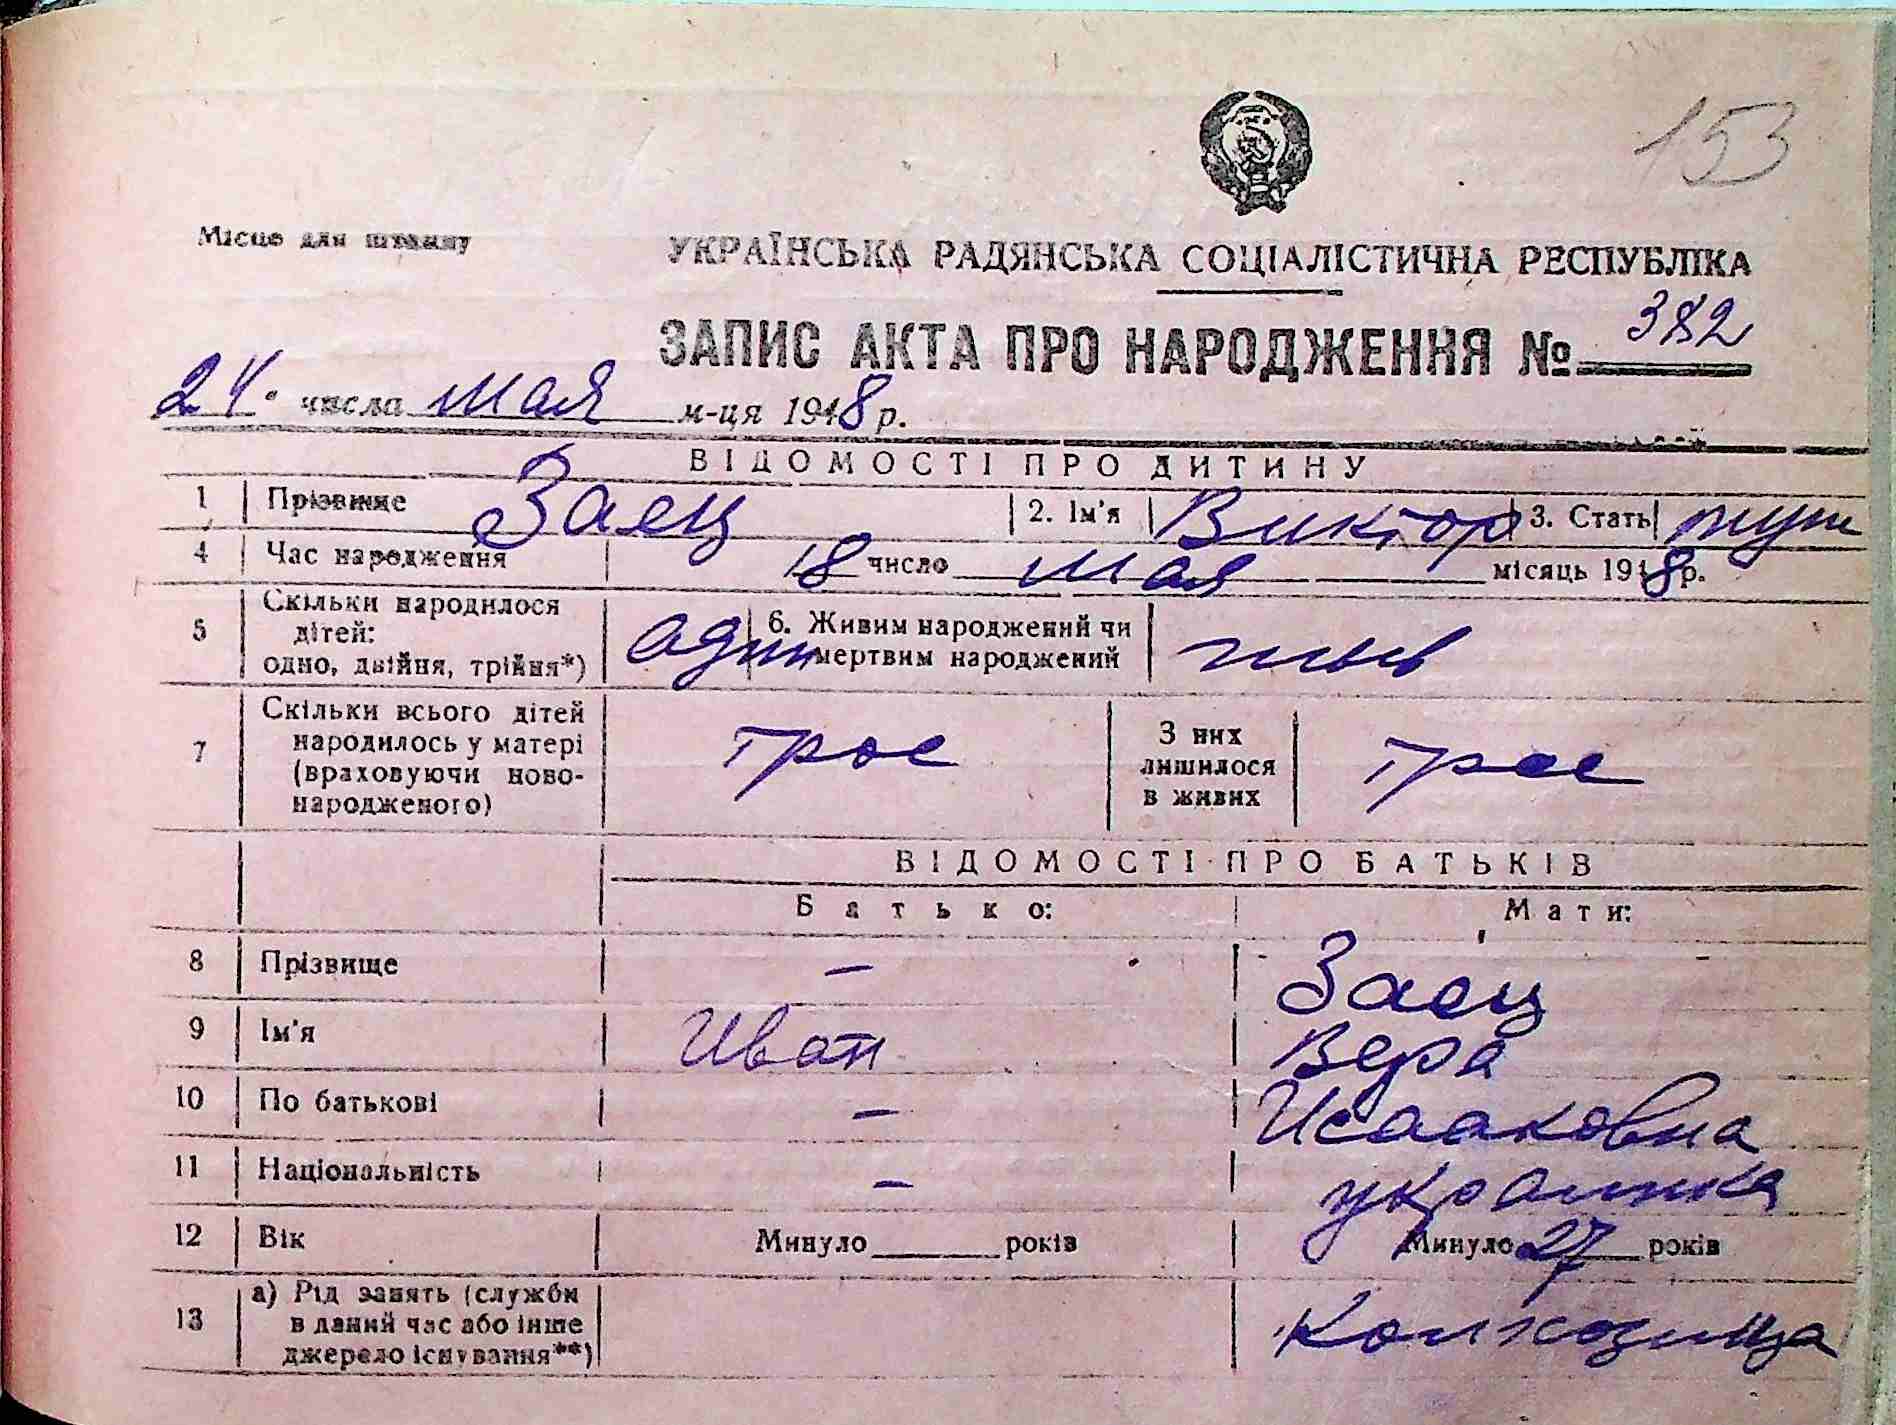 153
Місце для штампу
УКРАЇНСЬКА РАДЯНСЬКА СОЦІАЛІСТИЧНА РЕСПУБЛІКА
ЗАПИС АКТА ПРО НАРОДЖЕННЯ № 382
24. числа мая м-ця 1948 р.
ВІДОМОСТІ ПРО ДИТИНУ
1 Прізвище Заец 2. Ім'я Виктор 3. Стать муж
4 Час народження 18 число мая місяць 1948 р.
5 Скільки народилося дітей: одно, двійня, трійня*) один 6. Живим народжений чи мертвим народжений жив
7 Скільки всього дітей народилось у матері (враховуючи ново-народженого) трое З них лишилося в живих трое
ВІДОМОСТІ ПРО БАТЬКІВ
Батько: Мати:
8 Прізвище — Заец
9 Ім'я Иван Вера
10 По батькові — Исааковна
11 Національність — украинка
12 Вік Минуло ______ років Минуло 27 років
13 а) Рід занять (служби в даний час або інше джерело існування**) Колхозница